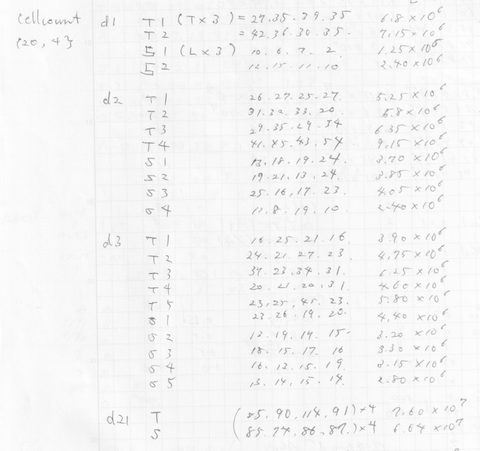 Cellcount d1 T1 (T×3) = 27.35.39.35 6.8×10⁶
(20, 4) T2 = 42.36.30.35. 7.15×10⁶
S1 (L×3) 10.6.7.2 1.25×10⁶
S2 12.15.11.10 2.40×10⁶
d2 T1 26.27.25.27 5.25×10⁶
T2 31.32.33.20 5.8×10⁶
T3 29.35.29.34 6.35×10⁶
T4 41.45.43.54 9.15×10⁶
S1 13.18.19.24 3.70×10⁶
S2 19.21.13.24 3.85×10⁶
S3 25.16.17.23 4.05×10⁶
S4 11.8.19.10 2.40×10⁶
d3 T1 16.25.21.16 3.90×10⁶
T2 24.21.27.23 4.75×10⁶
T3 37.23.34.31 6.25×10⁶
T4 20.21.20.31 4.60×10⁶
T5 23.25.45.23 5.80×10⁶
S1 23.26.19.20 4.40×10⁶
S2 12.19.19.15 3.20×10⁶
S3 18.15.17.16 3.30×10⁶
S4 16.12.15.19 3.15×10⁶
S5 13.14.15.14 2.80×10⁶
d21 T (85,90,114,91)×4 7.60×10⁷
S (85.74.86.87.)×4 6.64×10⁷